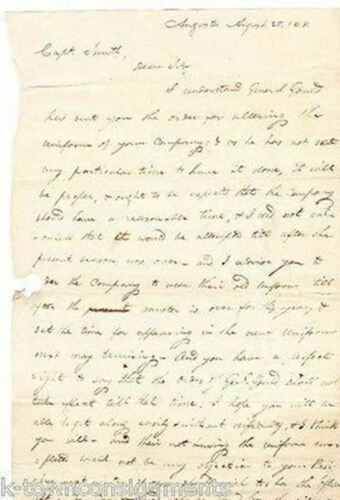 Augusta August 25. 18
Capt. Smith,
Dear Sir,
I understand General Gould
has sent you the order for altering the
uniform of your Company; & as he has not set
any particular time to have it done, it will
be proper, & ought to be expected that the Company
should have a reasonable time, & I did not
that it would be attempted till after the
present season was over – and I advise you to
the Company to wear their old uniform till
after the muster is over for this year, &
set the time for appearing in the new Uniform
next may training – And you have a perfect
right to say that the order of Genl. Gould shall not
take effect till that time. I hope you will be
able to get along easily without difficulty, & I think
you will – and their not having the uniform
would not be any objection to your
k-townconsignments